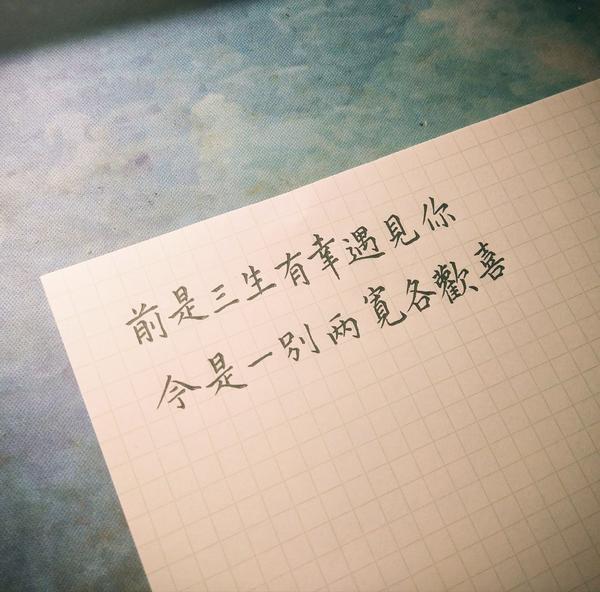 前是三生有幸遇見你
今是一别两寬各歡喜